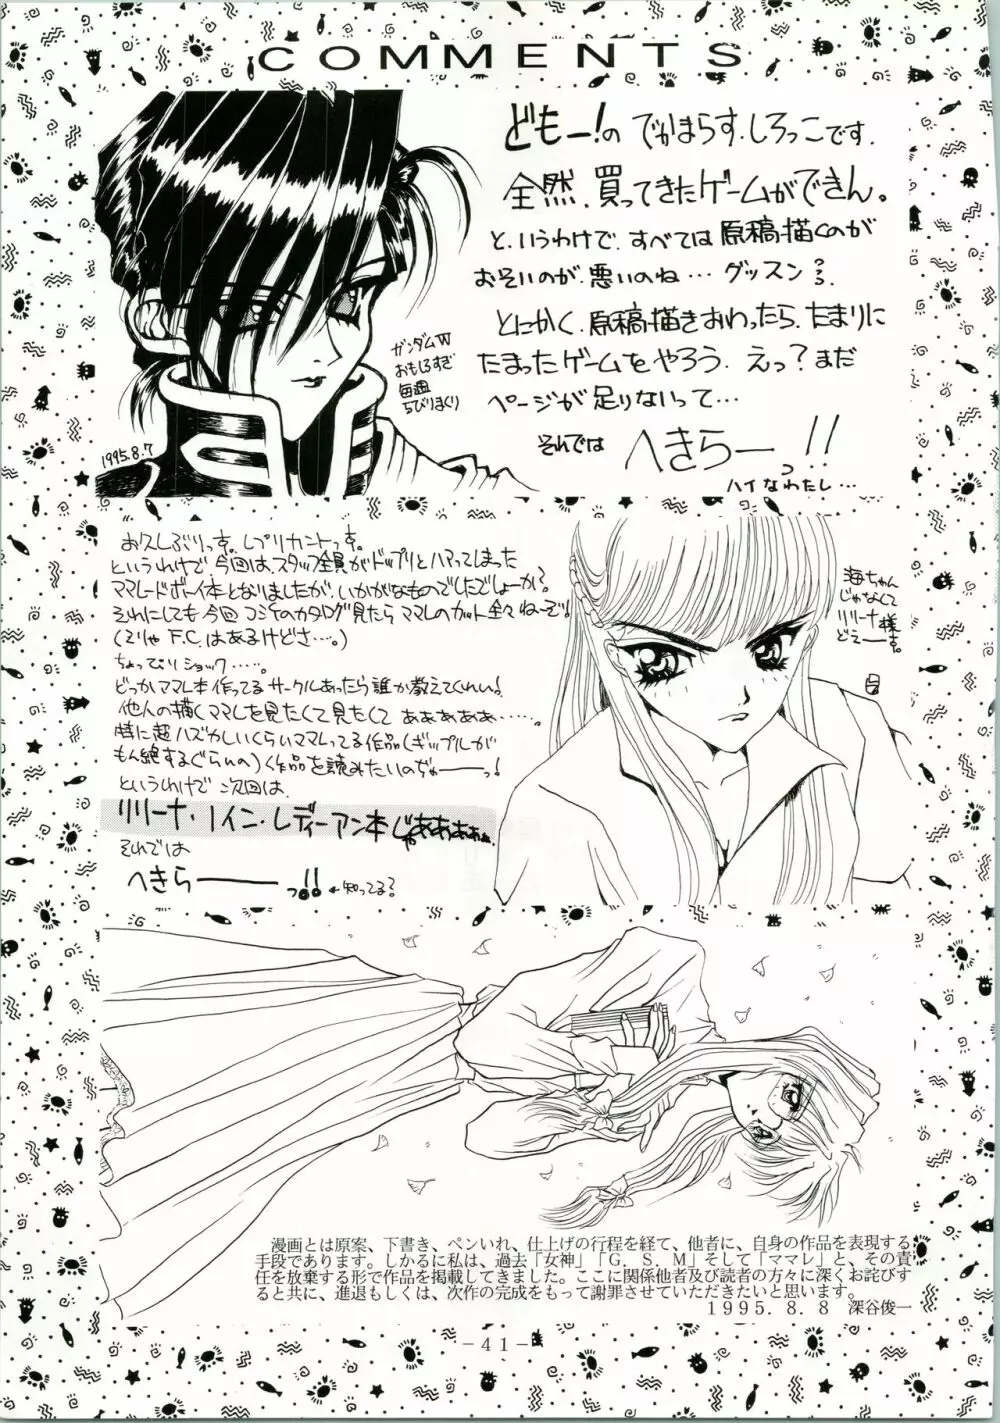 COMMENTS
どもー!の でかまらす.しろっこです.
全然.買ってきたゲームができん。
と.いうわけで.すべては原稿描くのが
おそいのが.悪いのね… グッスン
とにかく.原稿描きおわったら.たまりに
たまったゲームをやろう. えっ?まだ
ページが足りないって…
それでは へきらーっ!!
ハイなわたし…
ガンダムW
おもしろすぎ
毎週
ちびりまくり
1995.8.7
お久しぶりっす。レプリカントっす。
というわけで.今回は.スタッフ全員がドップリとハマってしまった
ママレードボーイ本となりましたが.いかがなものでしたでしょーか?
それにしても今回コミケのカタログ見たらママレのカット全々ねーぞ!
(そりゃF.C.はあるけどさ…。)
ちょっぴりショック……。
どっかママレ本作ってるサークルあったら誰か教えてくれい!
他人の描くママレを見たくて見たくてああああああ……。
特に超ハズかしいくらいママレってる作品(ギップルが
もん絶するぐらいの)作品を読みたいのぢゃーーっ!
というわけで次回は.
リリーナ・ノイン・レディーアン本じゃああああぁぁ.
それでは
へきらーーーっ!! ←知ってる?
海ちゃん
じゃなくて
リリーナ様
どえーーす。
漫画とは原案、下書き、ペンいれ、仕上げの行程を経て、他者に、自身の作品を表現する
手段であります。しかるに私は、過去「女神」「G．S．M」そして「ママレ」と、その責
任を放棄する形で作品を掲載してきました。ここに関係他者及び読者の方々に深くお詫びす
ると共に、進退もしくは、次作の完成をもって謝罪させていただきたいと思います。
1995．8．8　深谷俊一
－41－